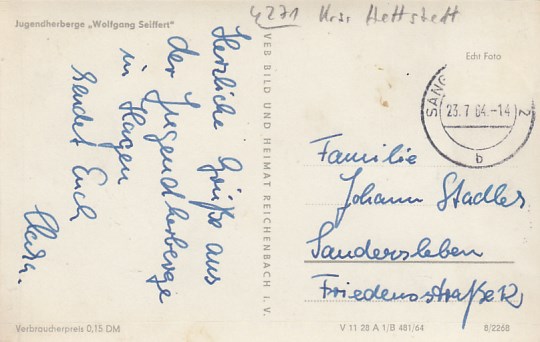 Jugendherberge „Wolfgang Seiffert"
4271 Krs. Hettstett
Echt Foto
Herzliche Grüße aus
der Jugendherberge
in Hagen
sendet Euch
VEB BILD UND HEIMAT REICHENBACH I. V.
SANG
23.7.64.-14
2
b
Familie
Johann Stadler
Sandersleben
Friedensstraße 12
Verbraucherpreis 0,15 DM
V 11 28 A 1/B 481/64
8/2268